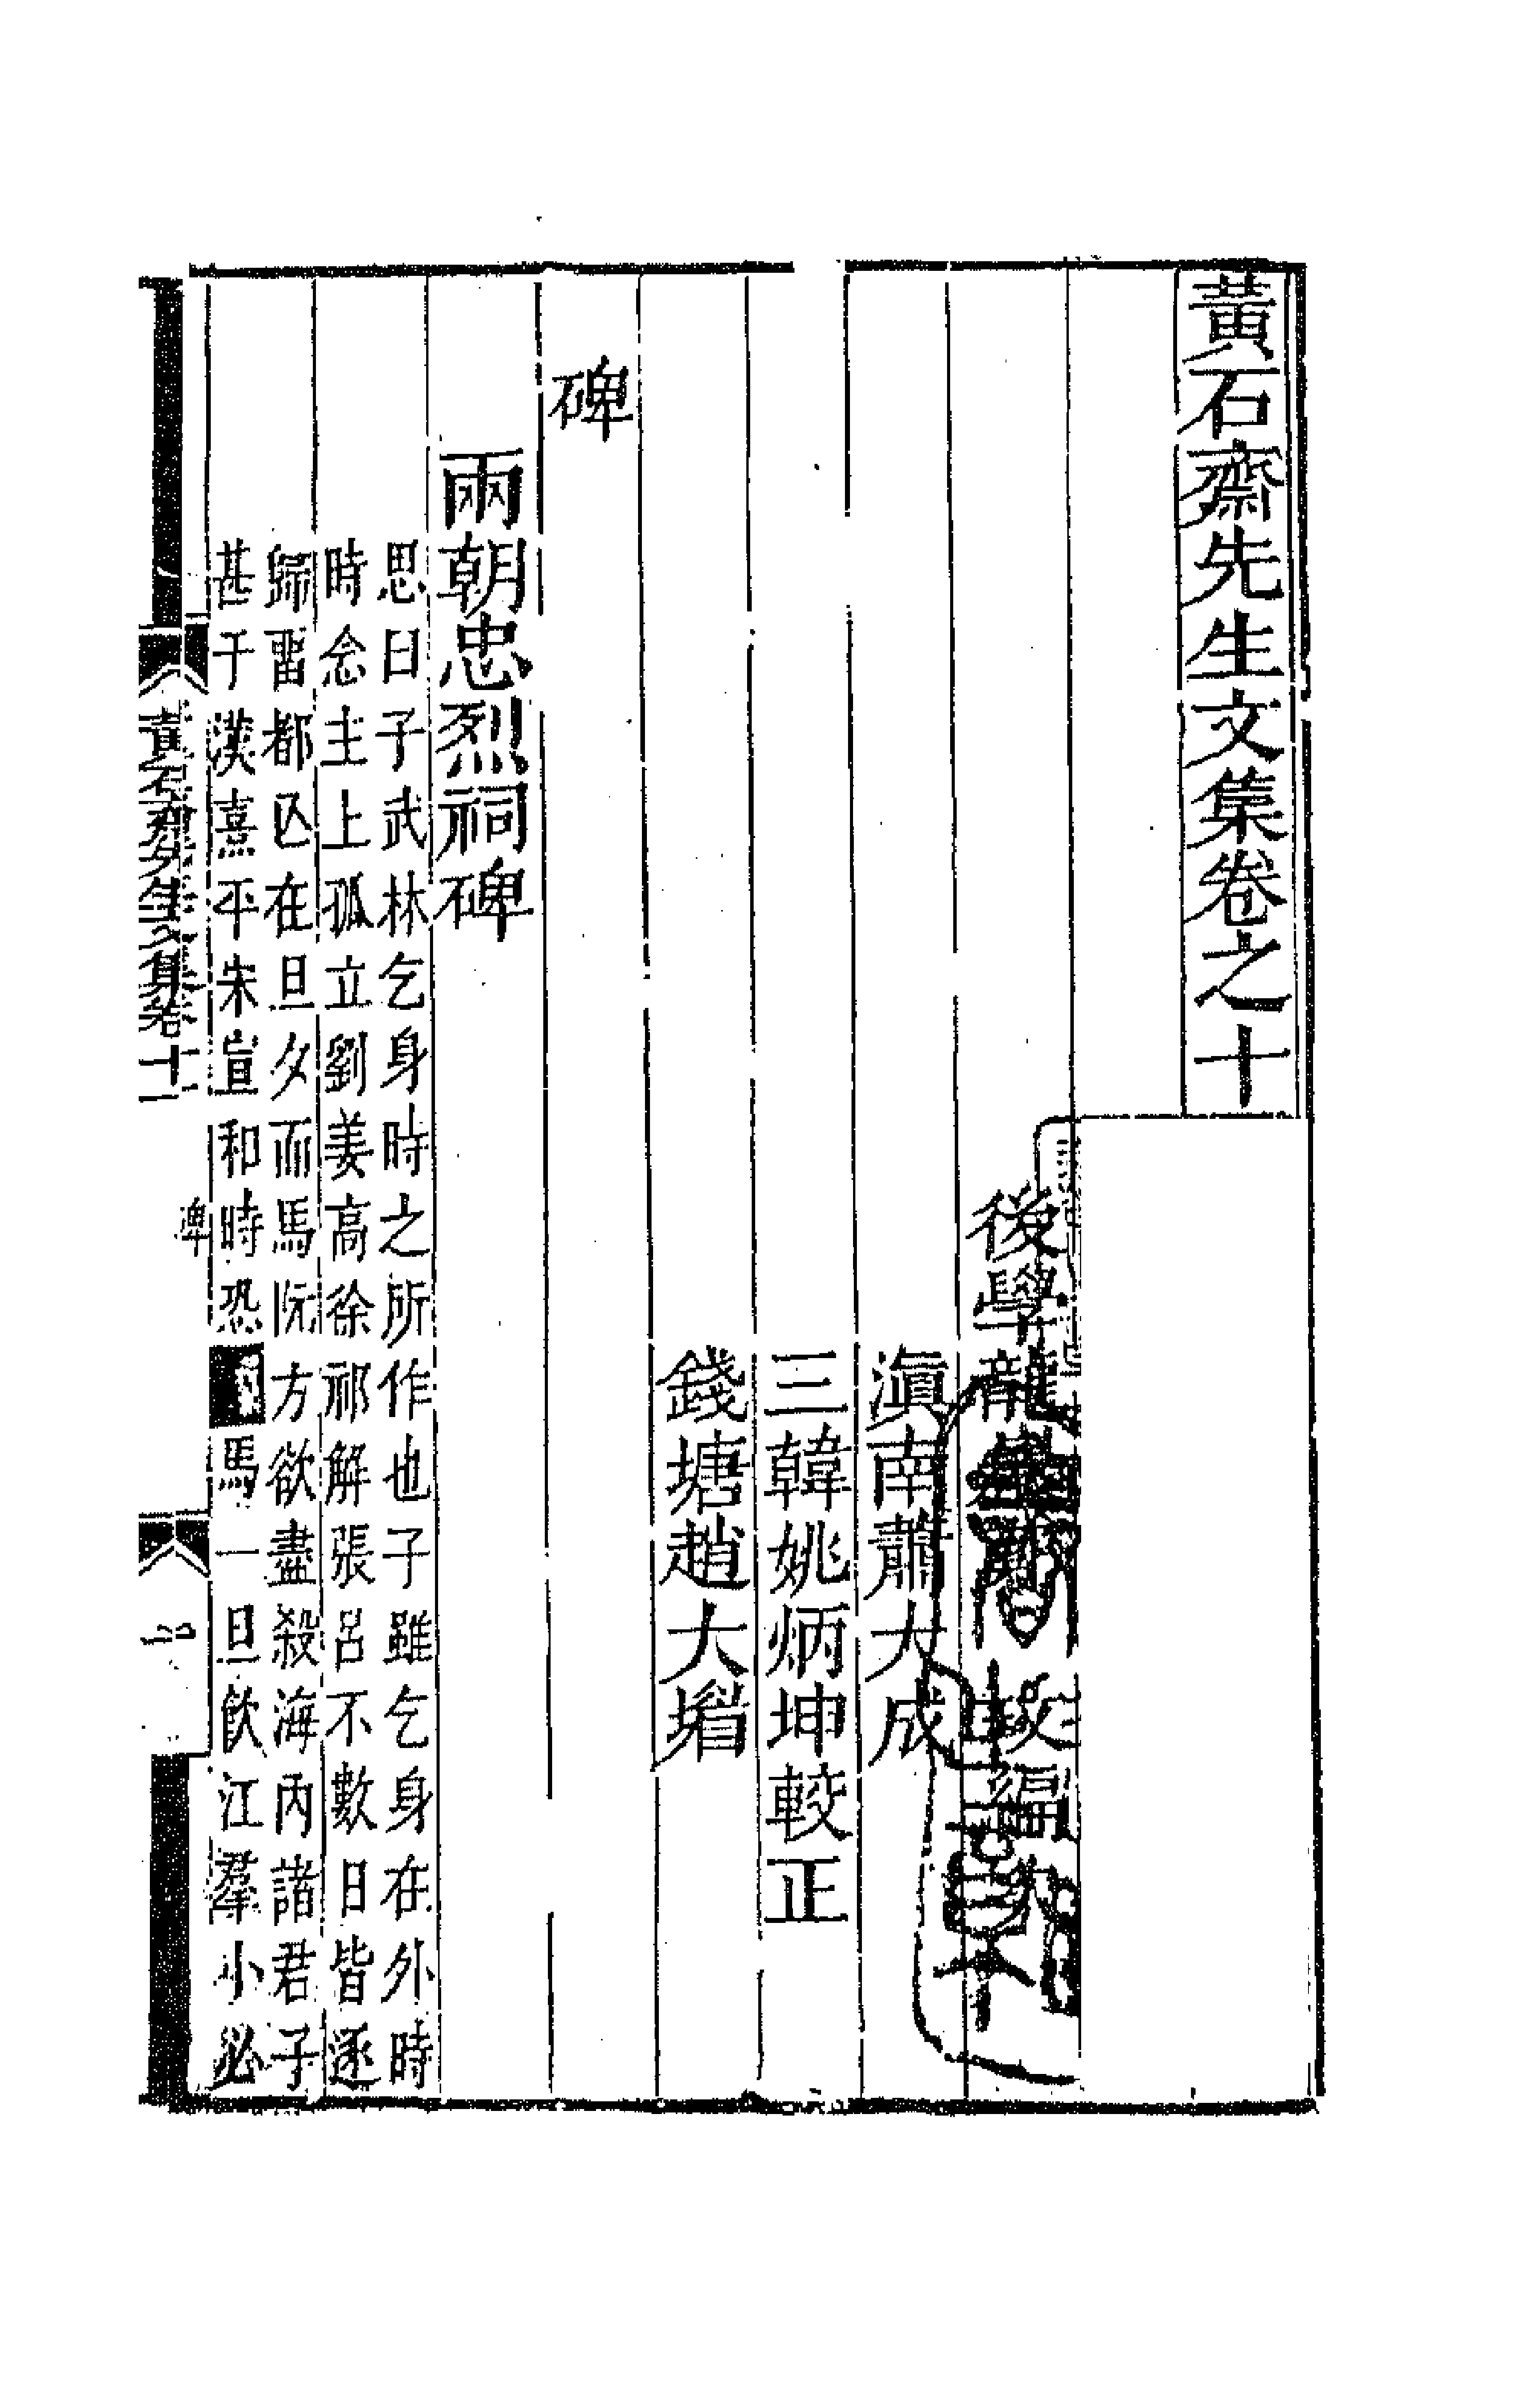 黃石齋先生文集卷之十
後學龍
編次
滇南蕭大成
三韓姚炳坤較正
錢塘趙大堦
碑
兩朝忠烈祠碑
思曰子武林乞身時之所作也子雖乞身在外時
時念主上孤立劉姜高徐祁解張呂不數日皆逐
歸畱都亾在旦夕而馬阮方欲盡殺海內諸君子
甚于漢熹平朱宣和時恐馬一旦飲江羣小必
黃石齋先生文集卷十一
碑